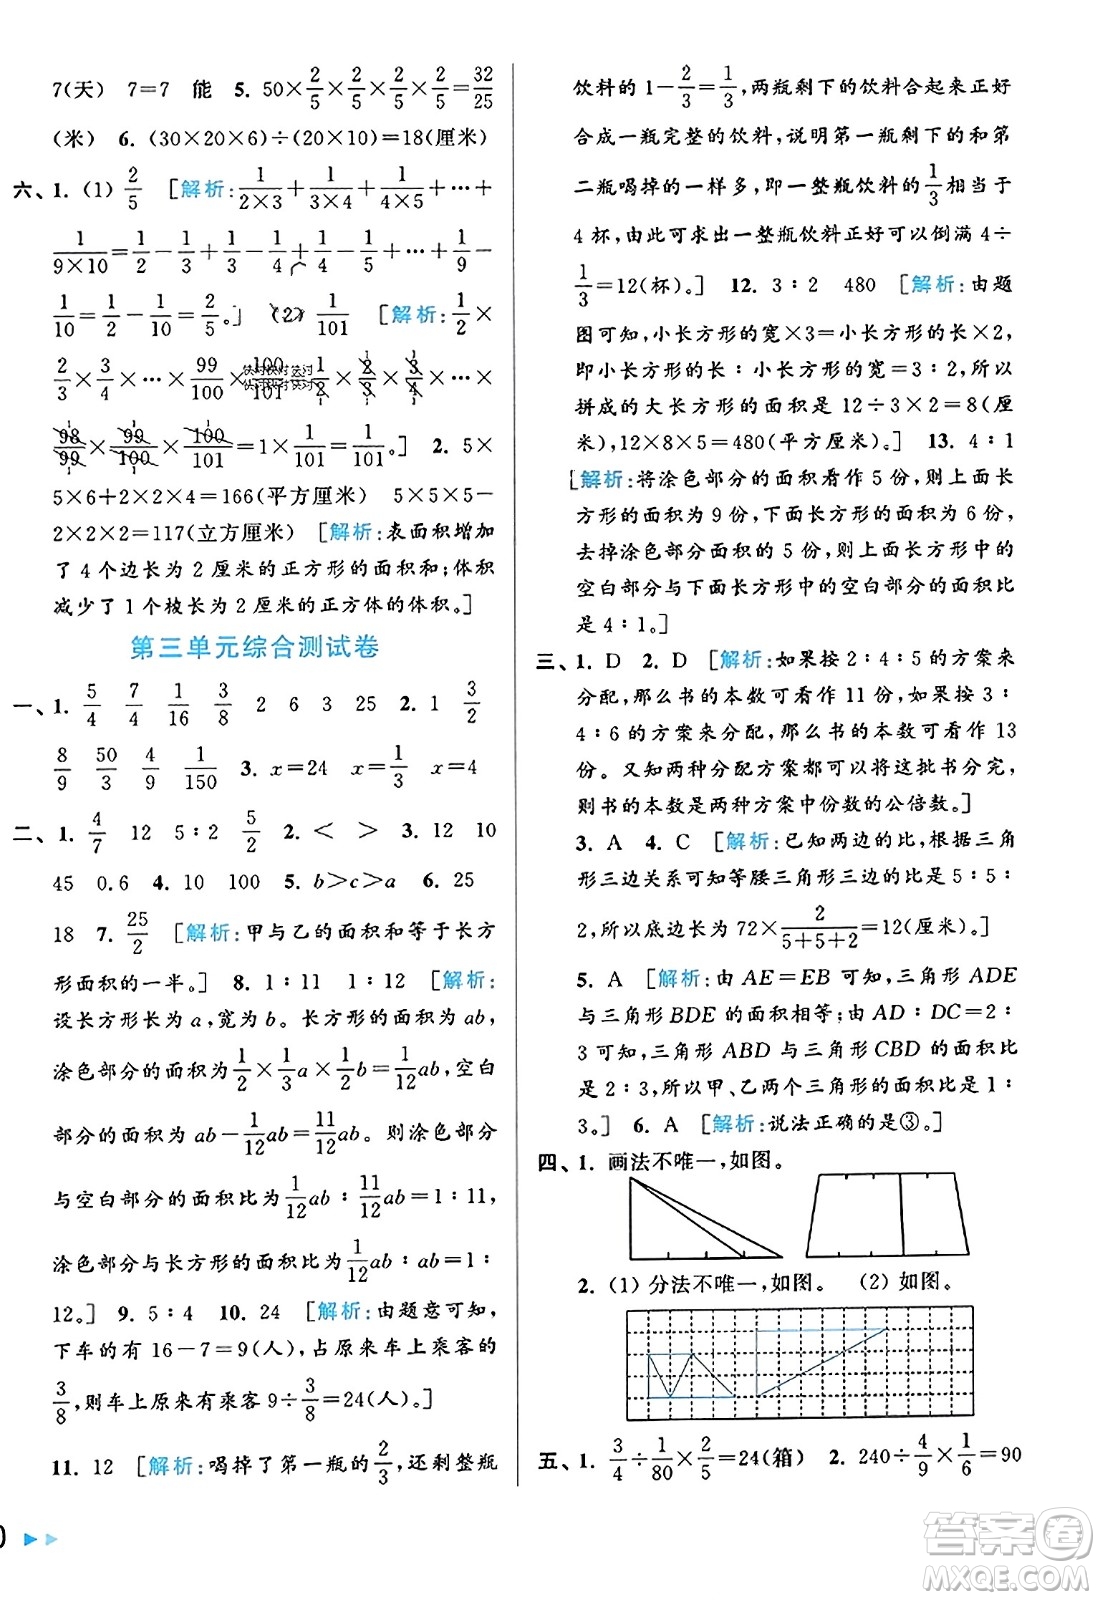 7(天) 7=7 能 5. 50×2/5×2/5×2/5×2/5=32/25
(米) 6. (30×20×6)÷(20×10)=18(厘米)
六、1. (1) 2/5 [解析:1/(2×3)+1/(3×4)+1/(4×5)+…+
1/(9×10)=1/2-1/3+1/3-1/4+1/4-1/5+…+1/9-
1/10=1/2-1/10=2/5。] (2) 1/101 [解析:1/2×
2/3×3/4×…×99/100×100/101=1/2×2/3×3/4×…×
98/99×99/100×100/101=1×1/101=1/101。] 2. 5×
5×6+2×2×4=166(平方厘米) 5×5×5-
2×2×2=117(立方厘米) [解析:表面积增加
了 4 个边长为 2 厘米的正方形的面积和;体积
减少了 1 个棱长为 2 厘米的正方体的体积。]
第三单元综合测试卷
一、1. 5/4 7/4 1/16 3/8 2 6 3 25 2. 1 3/2
8/9 50/3 4/9 1/150 3. x=24 x=1/3 x=4
二、1. 4/7 12 5∶2 5/2 2. < > 3. 12 10
45 0.6 4. 10 100 5. b>c>a 6. 25
18 7. 25/2 [解析:甲与乙的面积和等于长方
形面积的一半。] 8. 1∶11 1∶12 [解析:
设长方形长为 a,宽为 b。长方形的面积为 ab,
涂色部分的面积为 1/2×1/2a×1/3b=1/12ab,空白
部分的面积为 ab-1/12ab=11/12ab。则涂色部分
与空白部分的面积比为 1/12ab∶11/12ab=1∶11,
涂色部分与长方形的面积比为 1/12ab∶ab=1∶
12。] 9. 5∶4 10. 24 [解析:由题意可知,
下车的有 16-7=9(人),占原来车上乘客的
3/8,则车上原来有乘客 9÷3/8=24(人)。]
11. 12 [解析:喝掉了第一瓶的 2/3,还剩整瓶
饮料的 1-2/3=1/3,两瓶剩下的饮料合起来正好
合成一瓶完整的饮料,说明第一瓶剩下的和第
二瓶喝掉的一样多,即一整瓶饮料的 1/3 相当于
4 杯,由此可求出一整瓶饮料正好可以倒满 4÷
1/3=12(杯)。] 12. 3∶2 480 [解析:由题
图可知,小长方形的宽×3=小长方形的长×2,
即小长方形的长∶小长方形的宽=3∶2,所以
拼成的大长方形的面积是 12÷3×2=8(厘
米),12×8×5=480(平方厘米)。] 13. 4∶1
[解析:将涂色部分的面积看作 5 份,上面长
方形的面积为 9 份,下面长方形的面积为 6 份,
去掉涂色部分面积的 5 份,则上面长方形中的
空白部分与下面长方形中的空白部分的面积比
是 4∶1。]
三、1. D 2. D [解析:如果按 2∶4∶5 的方案来
分配,那么书的本数可看作 11 份,如果按 3∶
4∶6 的方案来分配,那么书的本数可看作 13
份。又知两种分配方案都可以将这批书分完,
则书的本数是两种方案中份数的公倍数。]
3. A 4. C [解析:已知两边的比,根据三角
形三边关系可知等腰三角形三边的比是 5∶5∶
2,所以底边长 72×2/(5+5+2)=12(厘米)。]
5. A [解析:由 AE=EB 可知,三角形 ADE
与三角形 BDE 的面积相等;由 AD∶DC=2∶
3 可知,三角形 ABD 与三角形 CBD 的面积比
是 2∶3,所以甲、乙两个三角形的面积比是 1∶
3。] 6. A [解析:说法正确的是③。]
四、1. 画法不唯一,如图。
2. (1) 分法不唯一,如图。 (2) 如图。
五、1. 3/4÷1/80×2/5=24(箱) 2. 240÷4/9×1/6=90
答案卷
MXQE.COM